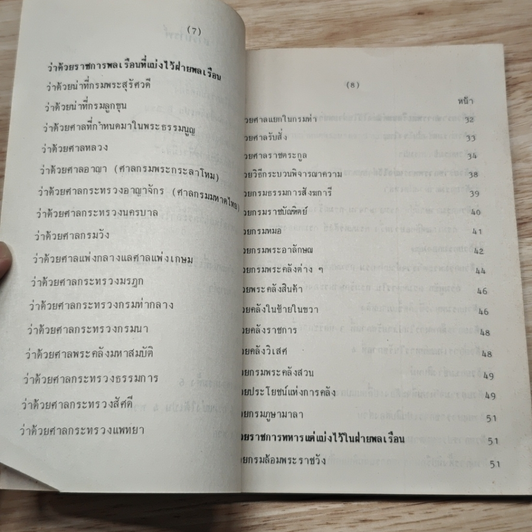 (7)
ว่าด้วยราชการพลเรือนที่แบ่งไว้ฝ่ายพลเรือน
ว่าด้วยน่าที่กรมพระสุรัศวดี
ว่าด้วยน่าที่กรมลูกขุน
ว่าด้วยศาลที่กำหนดมาในพระธรรมนูญ
ว่าด้วยศาลหลวง
ว่าด้วยศาลอาญา (ศาลกรมพระกระลาโหม)
ว่าด้วยศาลกระทรวงอาญาจักร (ศาลกรมมหาดไทย)
ว่าด้วยศาลกระทรวงนครบาล
ว่าด้วยศาลกรมวัง
ว่าด้วยศาลแพ่งกลางแลศาลแพ่งเกษม
ว่าด้วยศาลกระทรวงมรฎก
ว่าด้วยศาลกระทรวงกรมท่ากลาง
ว่าด้วยศาลกระทรวงกรมนา
ว่าด้วยศาลพระคลังมหาสมบัติ
ว่าด้วยศาลกระทรวงธรรมการ
ว่าด้วยศาลกระทรวงสัศดี
ว่าด้วยศาลกระทรวงแพทยา
(8)
หน้า
วยศาลแยกในกรมท่า 32
วยศาลรับสั่ง 33
วยศาลราชตระกูล 34
วยวิธีกระบวนพิจารณาความ 38
วยกรมธรรมการสังฆการี 39
วยกรมราชบัณฑิตย์ 40
วยกรมหมอ 41
วยกรมพระอาลักษณ 42
วยกรมพระคลังต่าง ๆ 44
วยพระคลังสินค้า 46
วยคลังในซ้ายในขวา 46
วยคลังราชการ 48
วยคลังวิเสศ 48
วยกรมพระคลังสวน 49
วยประโยชน์แห่งการคลัง 49
วยกรมภูษามาลา 51
วยราชการทหารแต่แบ่งไว้ในฝ่ายพลเรือน 51
วยกรมล้อมพระราชวัง 51